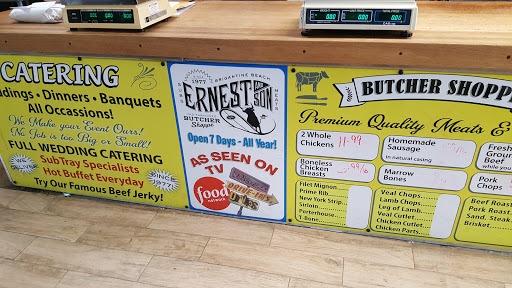 CATERING
ddings • Dinners • Banquets
All Occassions!
We Make your Event Ours!
No Job is too Big or Small!
FULL WEDDING CATERING
SubTray Specialists
Hot Buffet Everyday
Try Our Famous Beef Jerky!
SINCE
1977!
1977
BRIGANTINE BEACH
SUBS
MEATS
ERNEST AND SON
BUTCHER
Shoppe
Open 7 Days - All Year!
AS SEEN ON
TV
food
network
BUTCHER SHOPPE
Premium Quality Meats &
2 Whole
Chickens
11.99
Homemade
Sausage
in natural casing
Fresh
Ground
Beef
while you
Boneless
Chicken
Breasts
Marrow
Bones
Pork
Chops
Filet Mignon
Prime Rib
New York Strip
Sirloin
Porterhouse
T-Bone
Veal Chops
Lamb Chops
Leg of Lamb
Veal Cutlet
Chicken Cutlet
Chicken Parts
Beef Roast
Pork Roast
Sand. Steak
Brisket